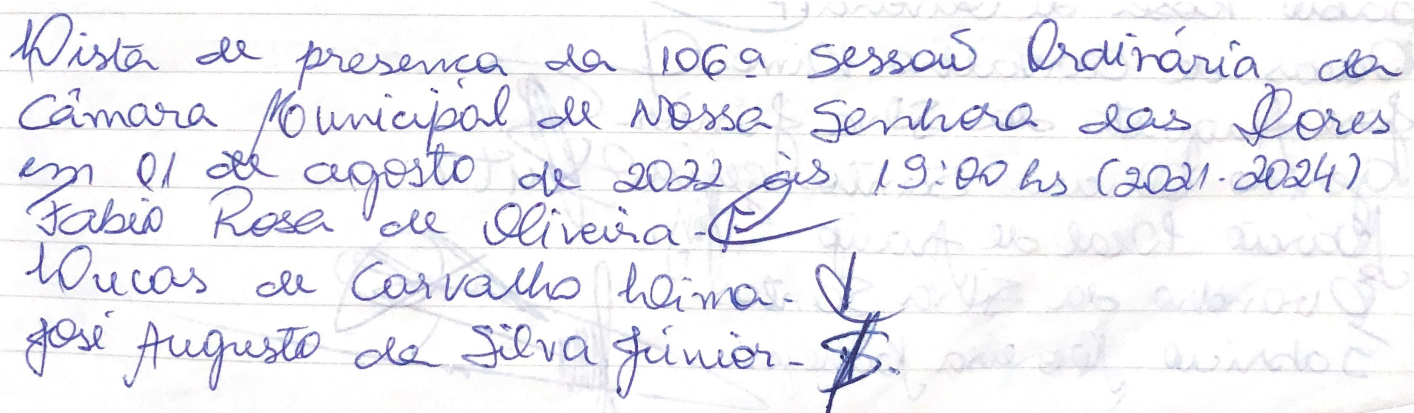 Lista de presença da 106ª Sessão Ordinária da
Câmara Municipal de Nossa Senhora das Dores
em 01 de agosto de 2022 às 19:00 hs (2021-2024)
Fabio Rosa de Oliveira -
Lucas de Carvalho Lima -
José Augusto da Silva Júnior -